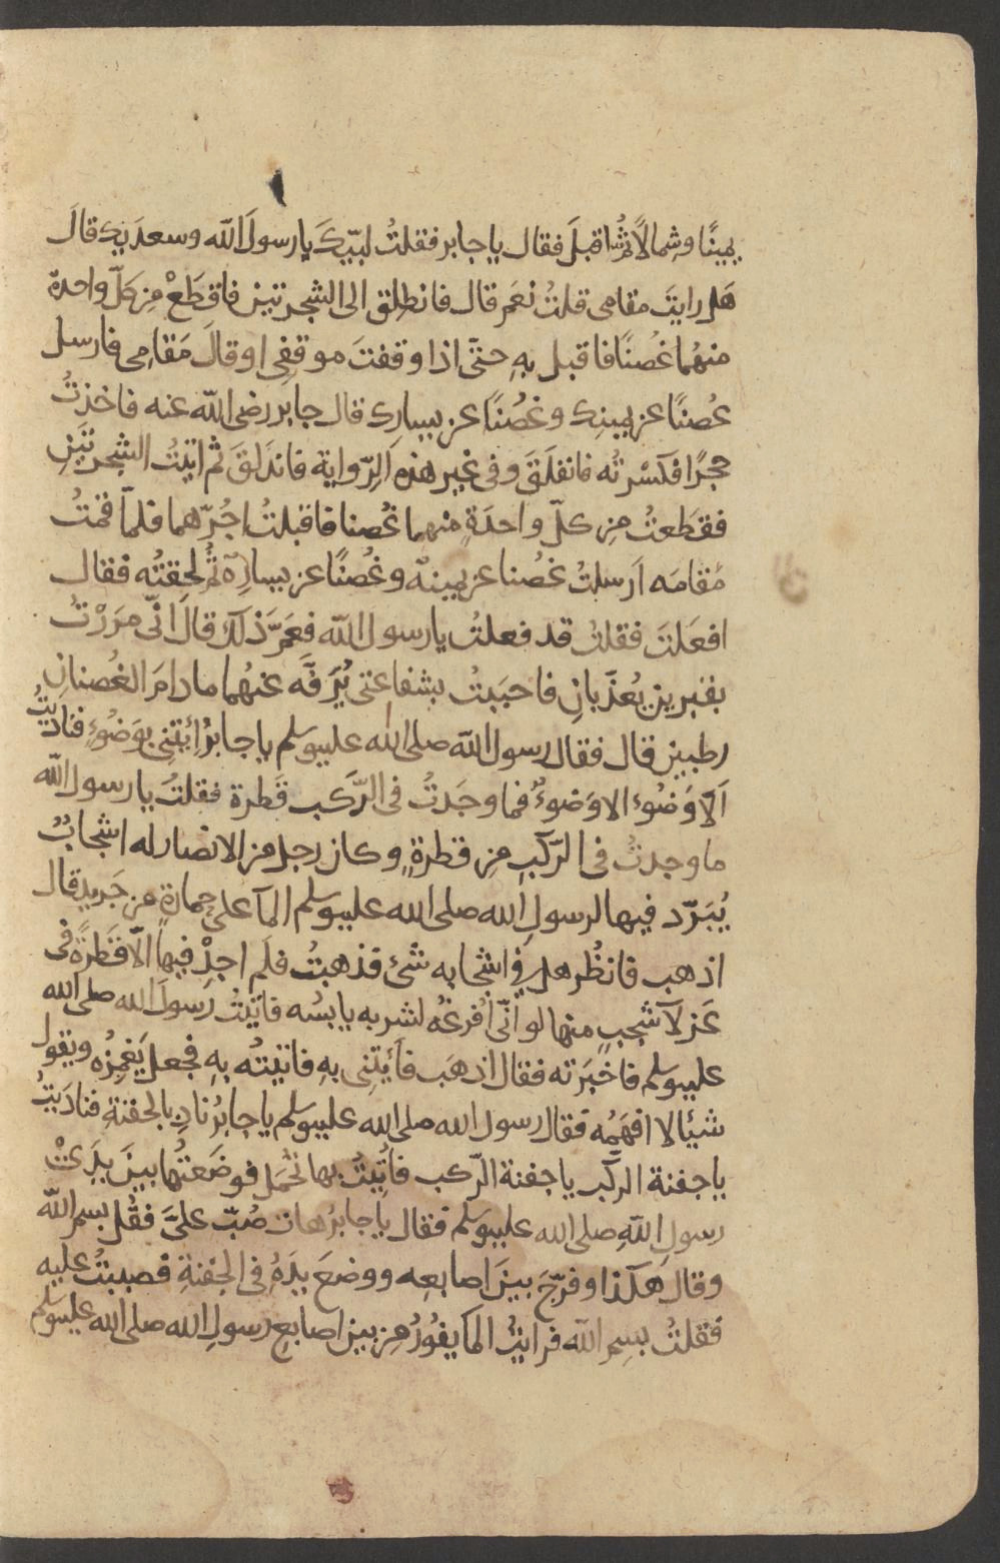 يمينًا وشِمالًا ثمّ اقبلَ فقال يا جابر فقلتُ لبيّكَ يا رسولَ الله وسعدَيك قالَ
هَل رايتَ مقامى قلتُ نعَم قال فانطلِق الى الشجرتين فاقطَعْ مِن كلّ واحدة
منهُما غُصنًا فاقبل بهِ حتّى اذا وقفتَ موقفِى او قالَ مَقامِى فارسل
غُصنًا عن يمينِك وغُصنًا عن يسارِك قال جابر رضى الله عنه فاخذتُ
حجرًا فكسرته فانفلَقَ وفى غير هذه الرّواية فاندَلقَ ثم اتيتُ الشجرتَين
فقطَعتُ مِن كلّ واحدَةٍ منهما غُصنا فاقبلتُ اجُرّهما فلمّا قمتُ
مَقامَه اَرسلتُ غُصنا عن يمينه وغُصنًا عن يسارِه ثُم لحِقتُه فقال
افعَلتَ فقلتُ قد فعلتُ يا رسول الله فعَمَّ ذلك قال انّى مَرَرْتُ
بقبرين يُعذّبانِ فاحبَبتُ بشفاعتى يُرَفَّه عنهُما مادامَ الغُصنانِ
رطبين قال فقال رسول الله صلى الله عليه وسلم يا جابرُ ائتِنِى بوَضُوءٍ فناديتُ
اَلا وَضُوء الا وَضوءٌ فما وجَدتُ فى الرَّكب قَطرة فقلتُ يا رسول الله
ما وجدتُ فى الرّكبِ مِن قطرةٍ وكان رجل من الانصار له اشجابٌ
يُبَرّد فيها لرسولِ الله صلى الله عليه وسلم المآ على حمارةٍ من جَريدٍ قال
اذهب فانظُر هل فى اشجابه شئ فذهبتُ فلَم اجِدْ فيها الّا قَطرَةً فى
عَزلآ شجبٍ منها لو انّى اُفرغُه لشربه يابسُه فاتيتُ رسولَ الله صلى الله
عليه وسلم فاخبَرته فقال اذهَب فأئتِنِى بهِ فاتيتُه بهِ فجعل يَغمِزُه ويقول
شيًا لا افهَمُه فقال رسول الله صلى الله عليه وسلم يا جابِرُ نادِ بالجفنةِ فنادَيتُ
يا جفنة الركَب يا جفنة الرّكب فاُتِيتُ بها تُحمَل فوضَعتُها بينَ يدَىْ
رسولِ اللهِ صلى الله عليه وسلم فقال يا جابرُ هات صُبّ علىَّ فقُل بسم الله
وقال هكذا وفرّجَ بينَ اصابعِه ووضعَ يدَهُ فى الجفنةِ فصببتُ عليه
فقلتُ بسِم الله فرايتُ المآ يفُورُ مِن بين اصابعِ رسولِ الله صلى الله عليه وسلم